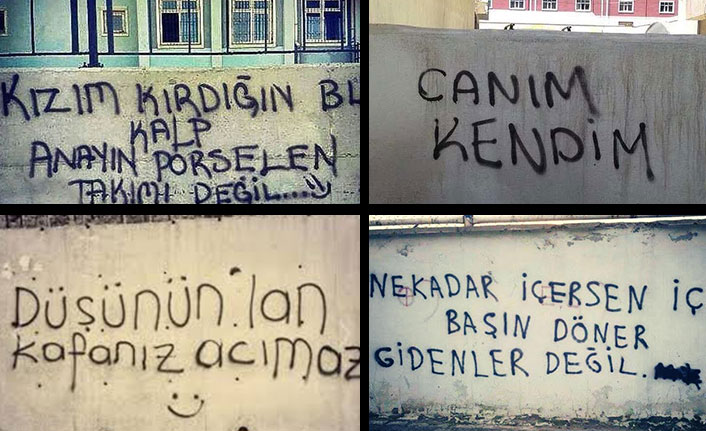 KIZIM KIRDIĞIN BU
KALP
ANAYIN PORSELEN
TAKIMI DEĞİL....
CANIM
KENDİM
DÜŞÜNÜN lan
kafanız acımaz
NEKADAR İÇERSEN İÇ
BAŞIN DÖNER
GİDENLER DEĞİL.